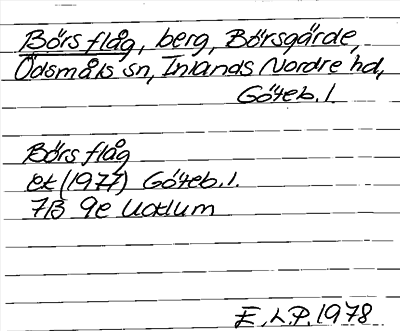 Börs flåg, berg, Börsgärde,
Ödsmåls sn, Inlands Nordre hd,
Göteb. l.
Börs flåg
ek (1977) Göteb. l.
7B 9e Ucklum
E. L. P. 1978